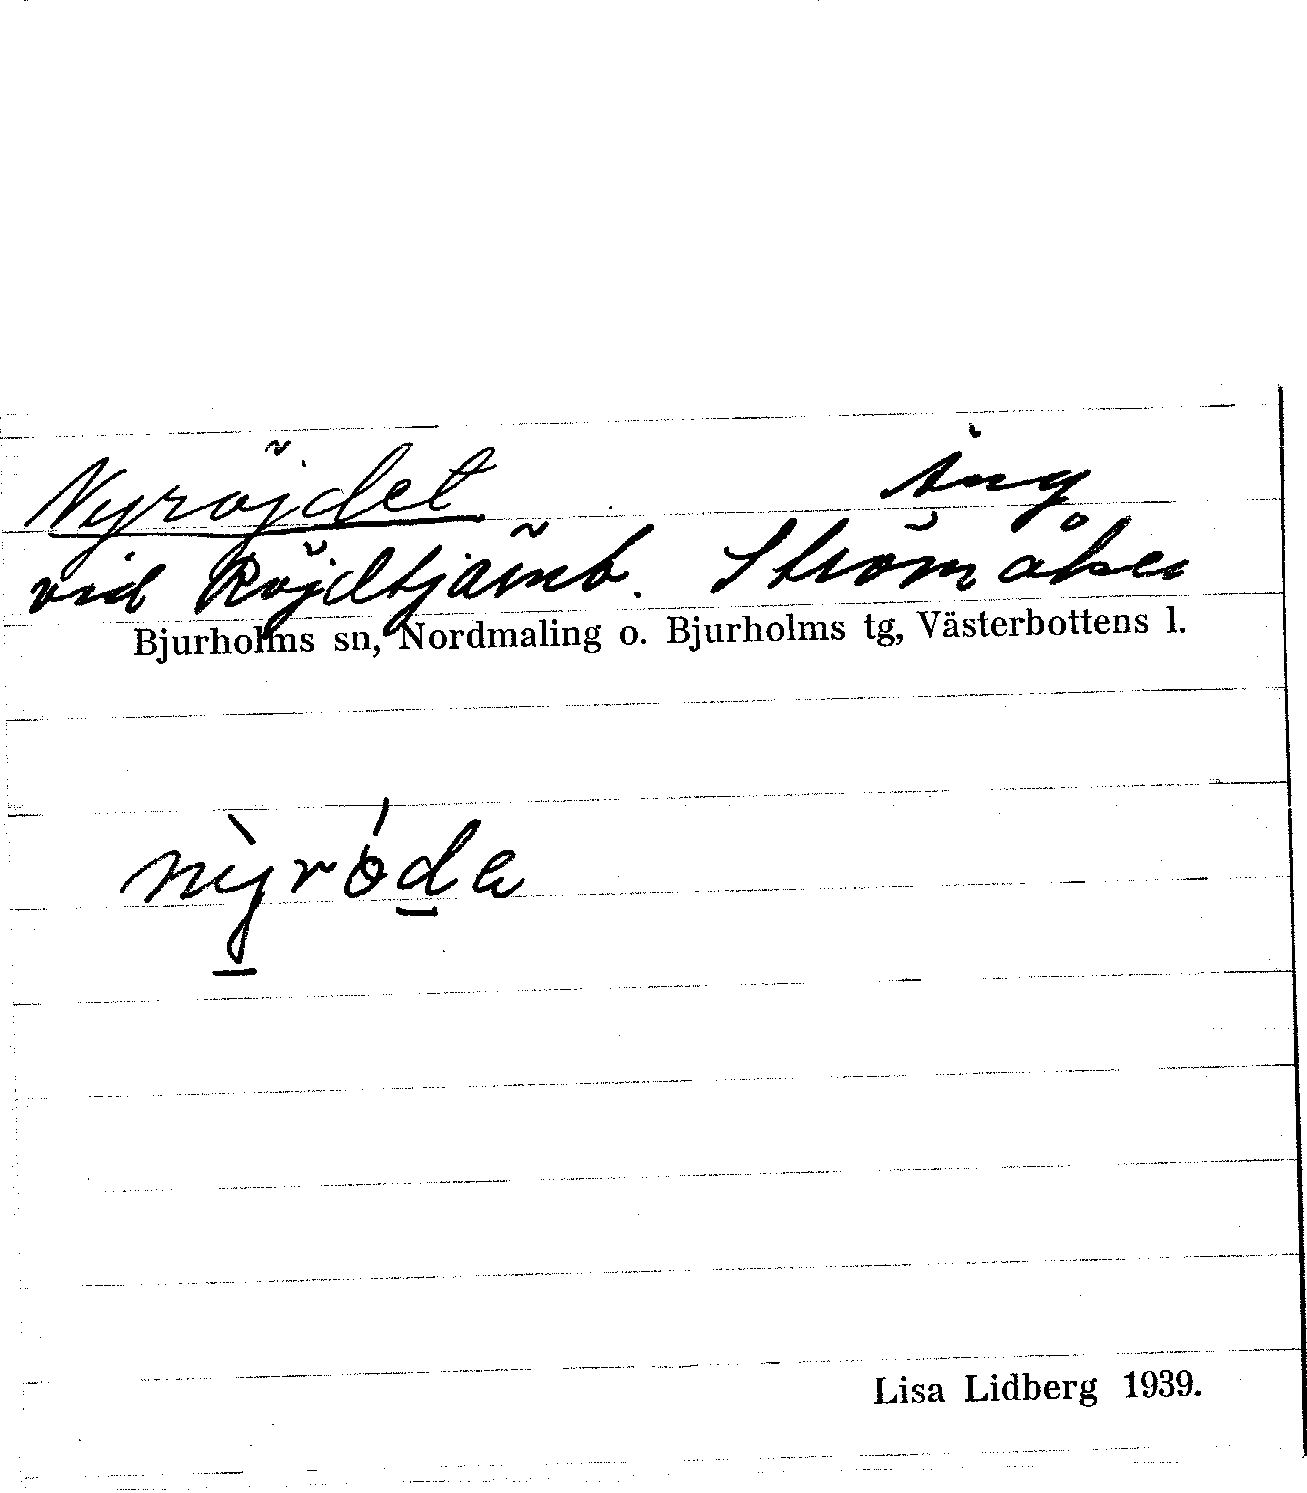 Nyröjdet äng
vid Röjdtjärnb. Strömåker
Bjurholms sn, Nordmaling o. Bjurholms tg, Västerbottens l.
nỳró̵da
Lisa Lidberg 1939.